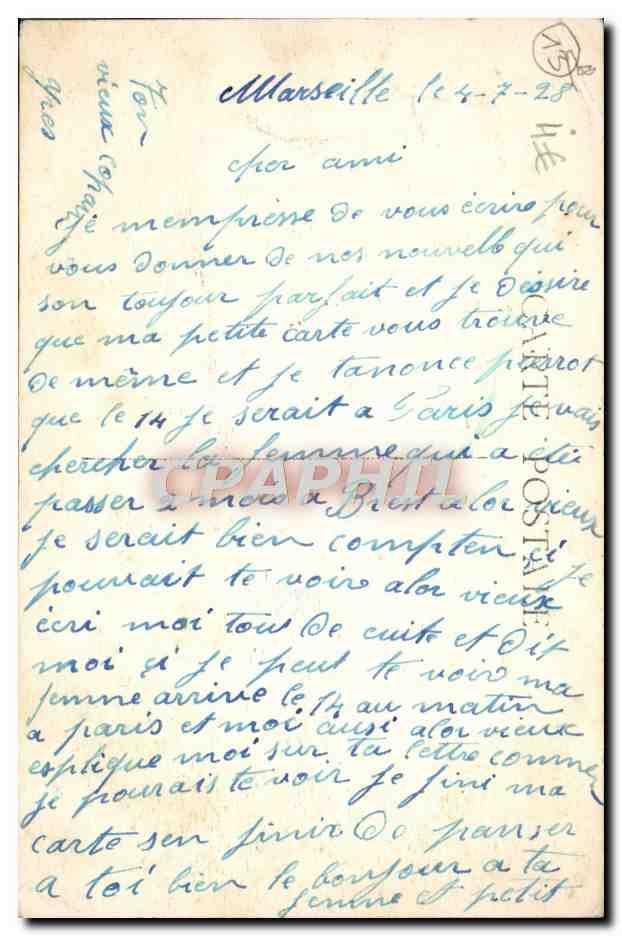 Marseille le 4-7-28
cher ami
Je mempresse de vous écrire pour
vous donner de nos nouvelle qui
son toujour parfait et je désire
que ma petite carte vous trouve
de même et je tanonce pierrot
que le 14 je serait a Paris je vais
chercher la femme qui a été
passer 2 mois a Brest alor vieux
je serait bien compten si je
pouvait te voir alor vieux
écri moi tout de cuite et dit
moi çi je peut te voir ma
femme arrive le 14 au matin
a paris et moi ausi alor vieux
esplique moi sur ta lettre commen
je pourais te voir je fini ma
carte sen finir de panser
a toi bien le bonjour a ta
femme et petit
Ton
vieux copain
Yves
15
4€
CARTE POSTALE
CPAPHIL